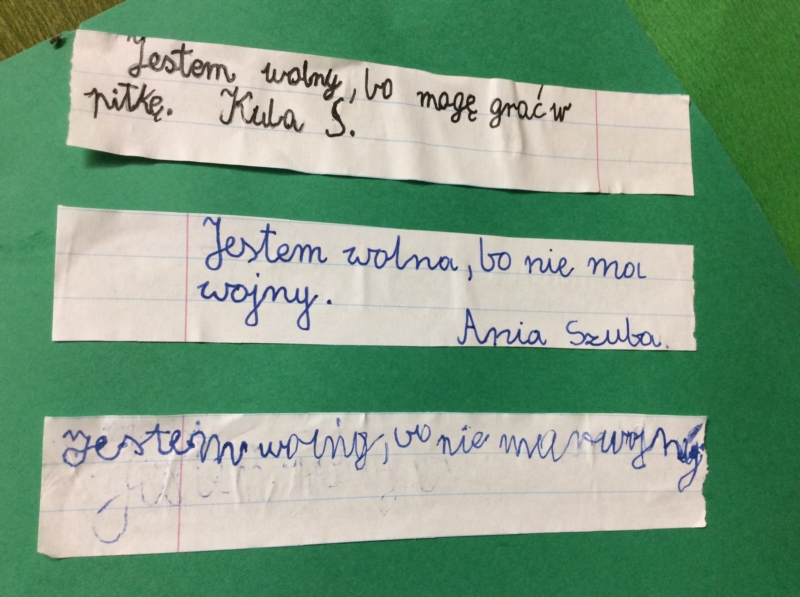 Jestem wolny, bo mogę grać w
piłkę. Kuba S.
Jestem wolna, bo nie ma
wojny.
Ania Szuba.
Jestem wolny, bo nie ma wojny